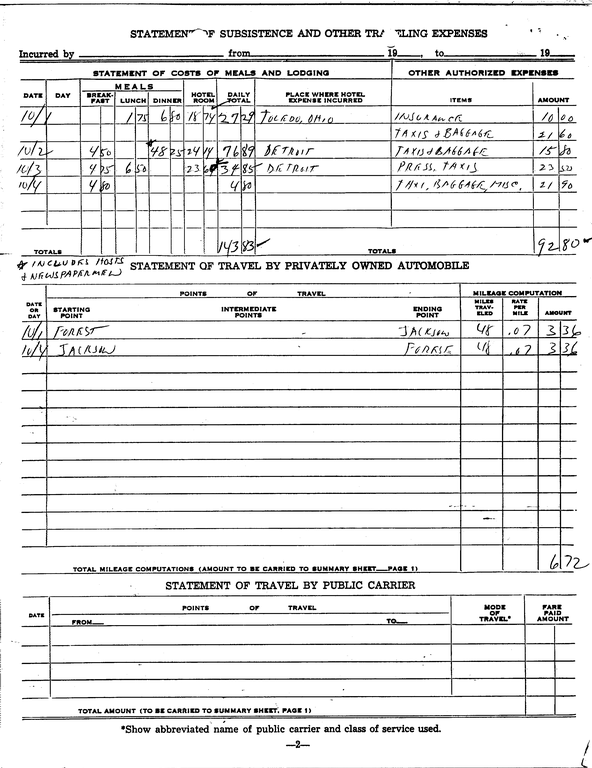 STATEMENT OF SUBSISTENCE AND OTHER TRAVELING EXPENSES
Incurred by from 19 , to 19
STATEMENT OF COSTS OF MEALS AND LODGING OTHER AUTHORIZED EXPENSES
MEALS
DATE DAY BREAK-FAST LUNCH DINNER HOTEL ROOM DAILY TOTAL PLACE WHERE HOTEL EXPENSE INCURRED ITEMS AMOUNT
10/1 1 75 6 80 18 74 27 29 TOLEDO, OHIO INSURANCE 10 00
TAXIS & BAGGAGE 21 60
10/2 4 50 * 48 25 24 14 76 89 DETROIT TAXIS & BAGGAGE 15 80
10/3 4 75 6 50 23 60 34 85 DETROIT PRESS, TAXIS 23 50
10/4 4 80 4 80 TAXI, BAGGAGE, MISC, 21 90
TOTALS 143 83 TOTALS 92 80
* INCLUDES HOSTS
& NEWSPAPERMEN
STATEMENT OF TRAVEL BY PRIVATELY OWNED AUTOMOBILE
POINTS OF TRAVEL MILEAGE COMPUTATION
DATE OR DAY STARTING POINT INTERMEDIATE POINTS ENDING POINT MILES TRAV-ELED RATE PER MILE AMOUNT
10/1 FOREST JACKSON 48 .07 3 36
10/4 JACKSON FOREST 48 .07 3 36
TOTAL MILEAGE COMPUTATIONS (AMOUNT TO BE CARRIED TO SUMMARY SHEET—PAGE 1) 6 72
STATEMENT OF TRAVEL BY PUBLIC CARRIER
DATE POINTS OF TRAVEL MODE OF TRAVEL* FARE PAID AMOUNT
FROM TO
TOTAL AMOUNT (TO BE CARRIED TO SUMMARY SHEET, PAGE 1)
*Show abbreviated name of public carrier and class of service used.
—2—